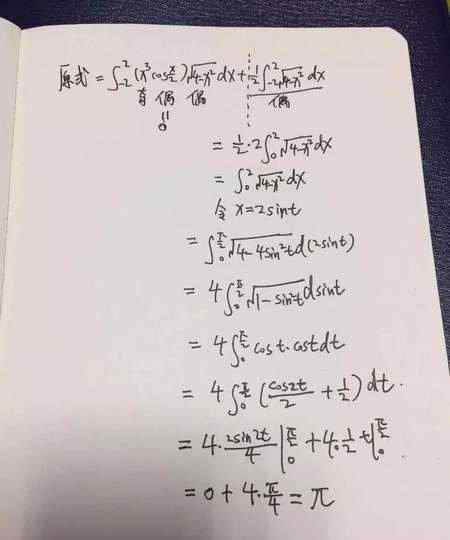 原式 = ∫₋₂² (x³cos x/2)√(4-x²) dx + 1/2 ∫₋₂² √(4-x²) dx
奇 偶 偶 偶
॥
0
= 1/2 · 2 ∫₀² √(4-x²) dx
= ∫₀² √(4-x²) dx
令 x=2sint
= ∫₀^(π/2) √(4-4sin²t) d(2sint)
= 4 ∫₀^(π/2) √(1-sin²t) dsint
= 4 ∫₀^(π/2) cost·costdt
= 4 ∫₀^(π/2) (cos2t/2 + 1/2) dt.
= 4· 2sin2t/4 |₀^(π/2) + 4·1/2 t |₀^(π/2)
= 0 + 4·π/4 = π